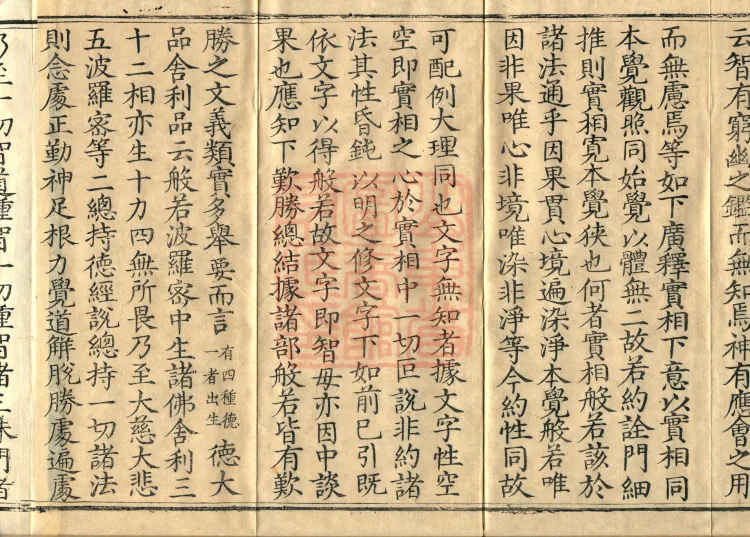 云智有窮幽之鑑而無知焉神有應會之用
而無慮焉等如下廣釋實相下意以實相同
本覺觀照同始覺以體無二故若約詮門細
推則實相寬本覺狹也何者實相般若該於
諸法通乎因果貫心境遍染淨本覺般若唯
因非果唯心非境唯染非淨等今約性同故
可配例大理同也文字無知者據文字性空
空即實相之心於實相中一切叵說非約諸
法其性昏鈍以明之修文字下如前已引既
依文字以得般若故文字即智母亦因中談
果也應知下歎勝總結據諸部般若皆有歎
勝之文義類實多舉要而言有四種德一者出生德大
品舍利品云般若波羅密中生諸佛舍利三
十二相亦生十力四無所畏乃至大慈大悲
五波羅密等二總持德經說總持一切諸法
則念處正勤神足根力覺道解脫勝處遍處
乃至一切智道種智一切種智諸三昧門者